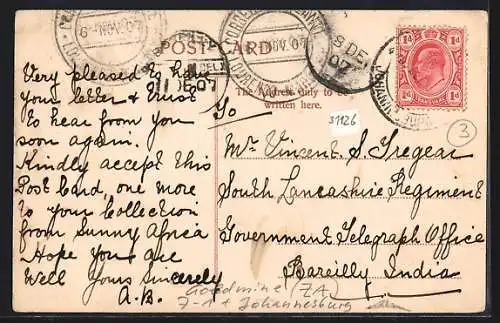 POST CARD
The Address only to be
written here.
Very pleased to have
your letter & trust
to hear from you
soon again.
Kindly accept this
Post Card, one more
to your Collection
from Sunny Africa
Hope you are
Well Yours Sincerely
A.B.
To
Mr Vincent. S. Tregear
South Lancashire Regiment
Government Telegraph Office
Bareilly India
31126
3
Goldmine (ZA)
Johannesburg
6-NOV.07
NOV.07
8 DE
07
1d 1d